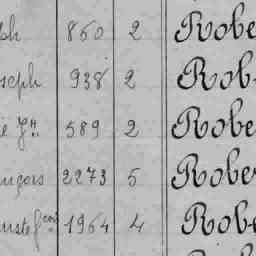 ph 860 2 Robe
seph 938 2 Rob
e Jn 589 2 Robe
nçois 2273 5 Rober
uste Gçois 1964 4 Robe